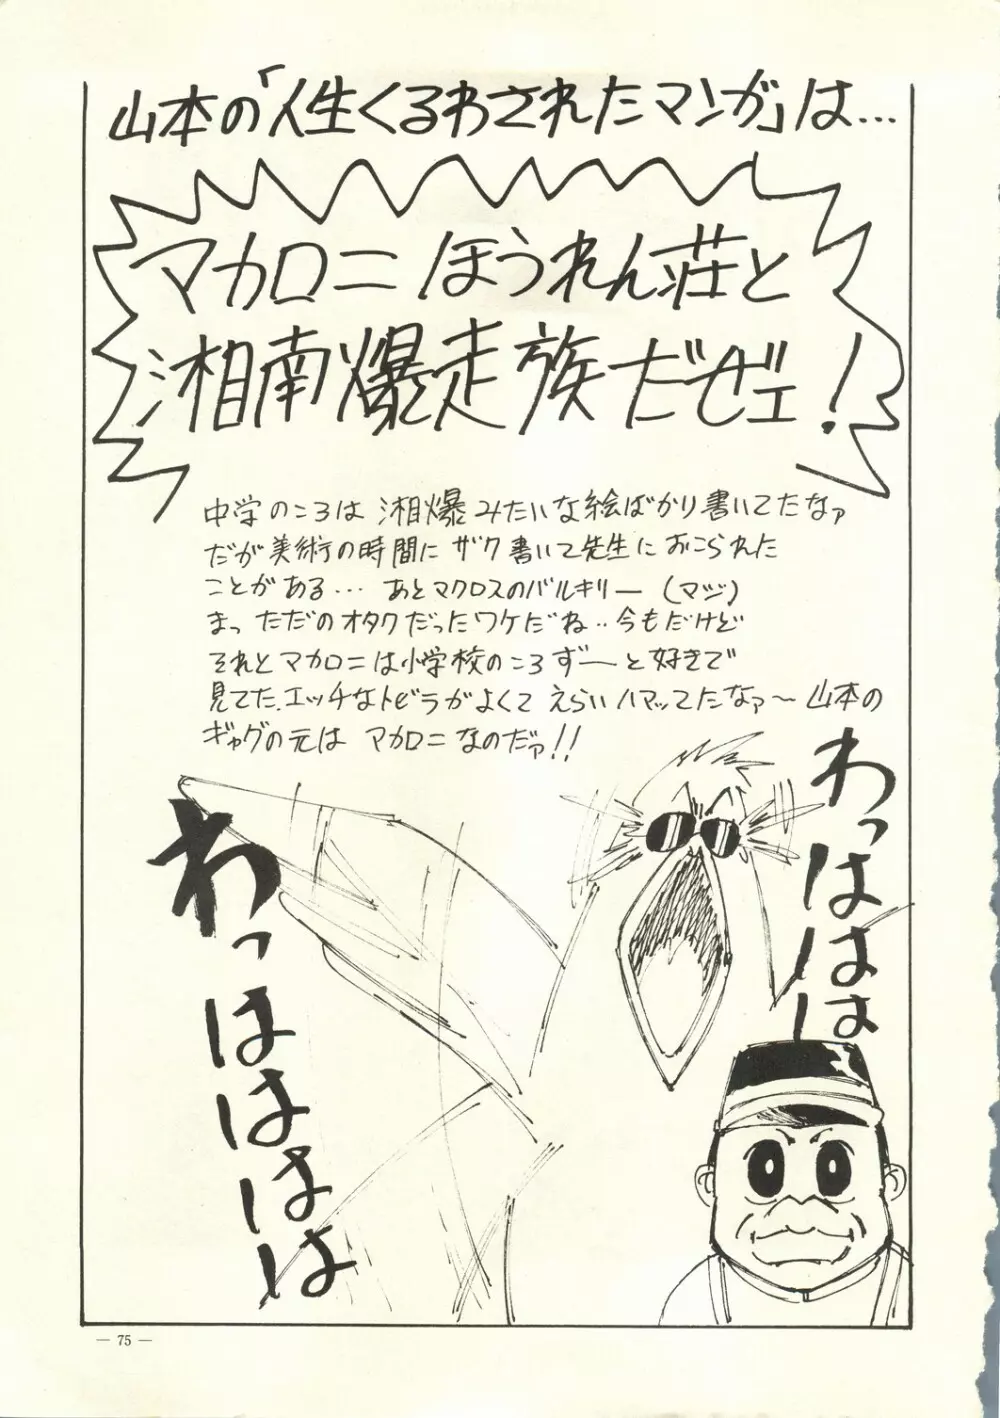 山本の「人生くるわされたマンガ」は…
マカロニほうれん荘と
湘南爆走族だぜェ!
中学のころは 湘爆みたいな絵ばかり書いてたなァ
だが美術の時間にザク書いて先生におこられた
ことがある… あとマクロスのバルキリー(マジ)
まっただのオタクだったワケだね‥今もだけど
それとマカロニは小学校のころずーと好きで
見てた.エッチなトビラがよくてえらいハマッてたなァ〜山本の
ギャグの元は マカロニなのだァ!!
わっはははは
わっははは
— 75 —